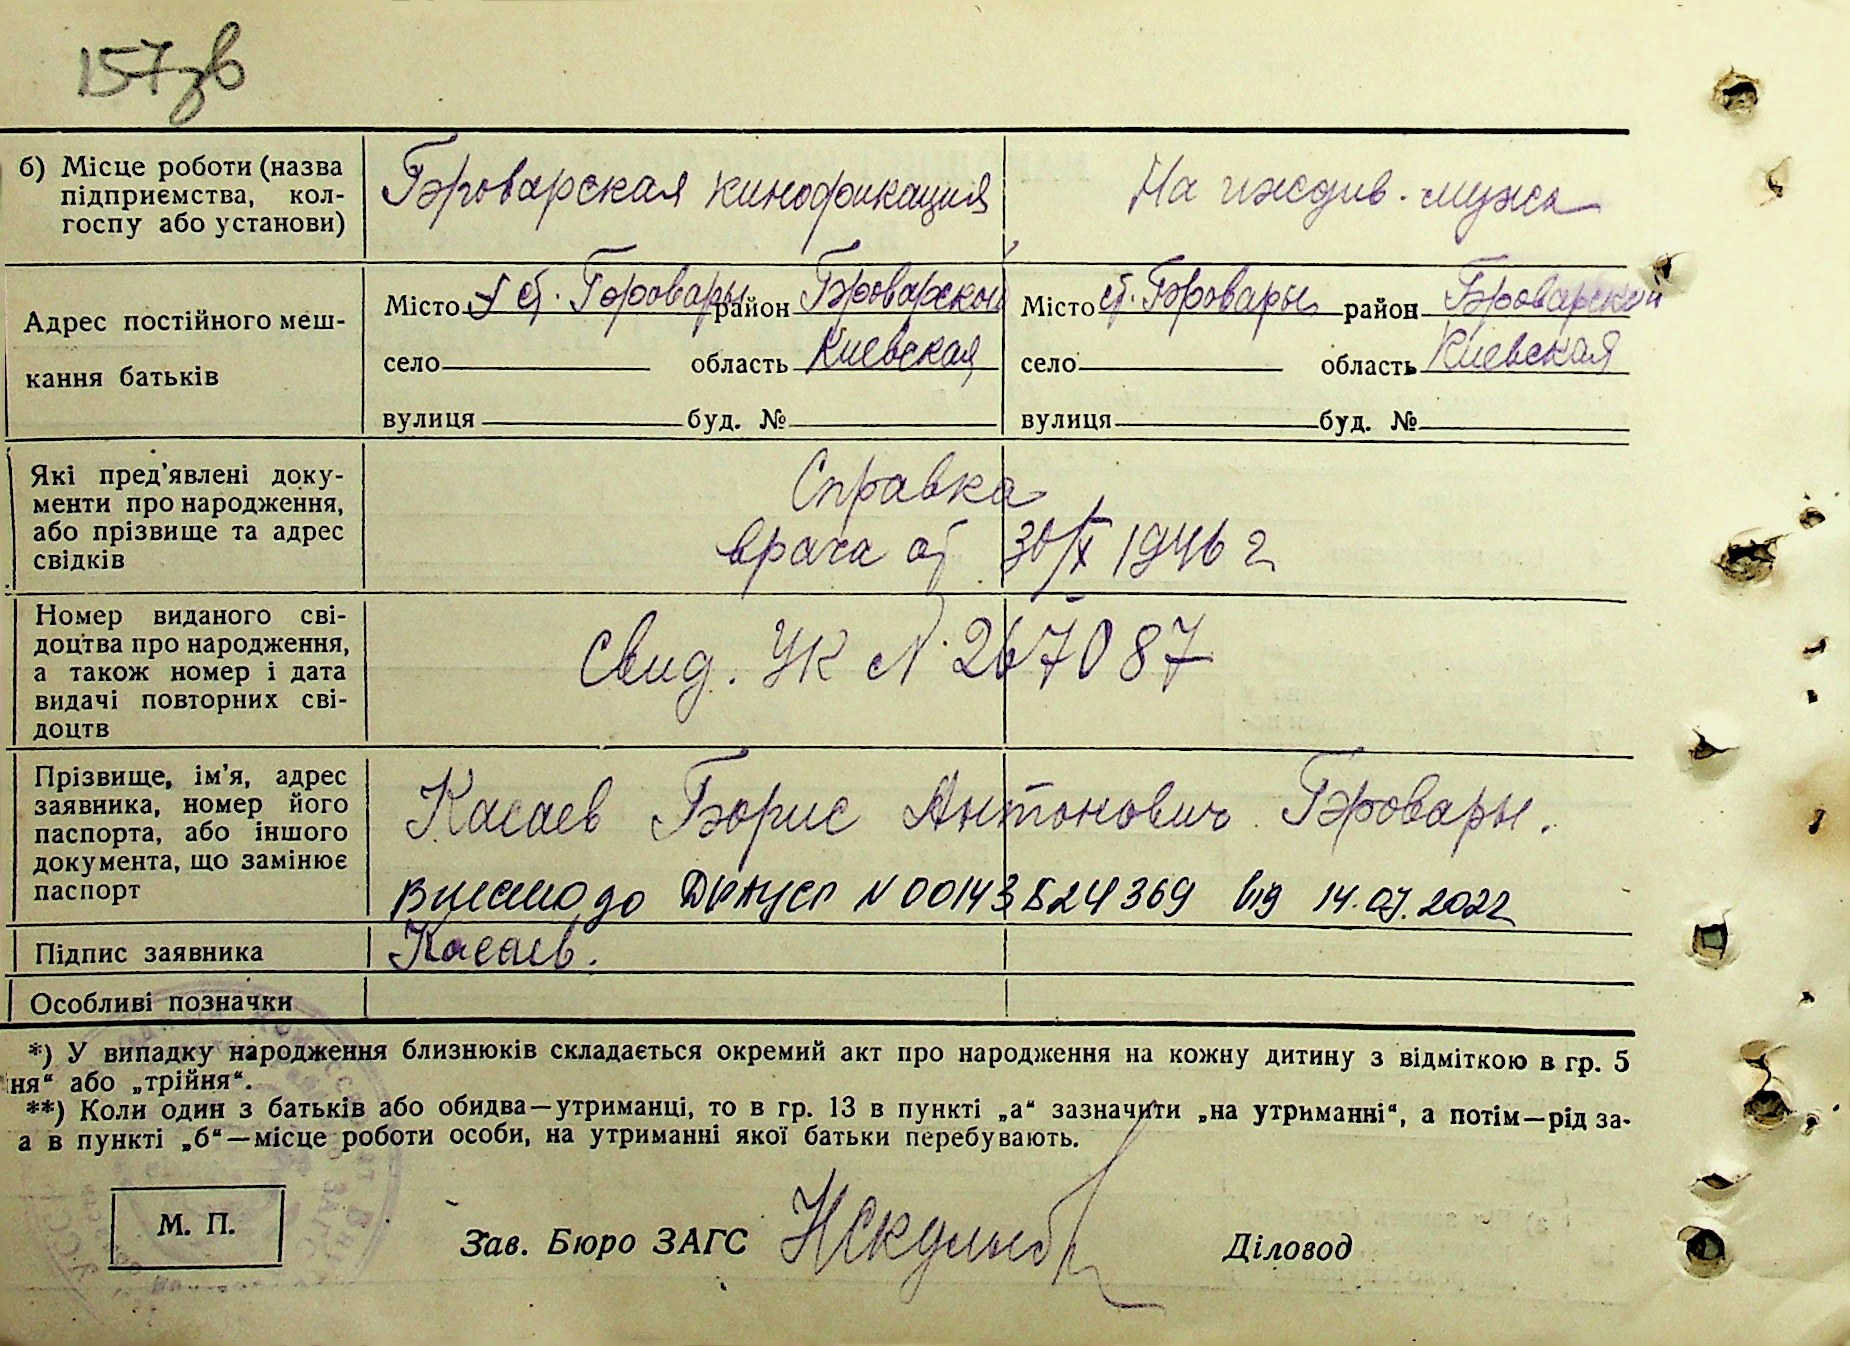 157зв
б) Місце роботи (назва
підприємства, кол-
госпу або установи)
Броварская кинофикация
На иждив. мужа
Адрес постійного меш-
кання батьків
Місто ст. Бровары район Броварской
село область Киевская
вулиця буд. №
Місто ст. Бровары район Броварской
село область Киевская
вулиця буд. №
Які пред'явлені доку-
менти про народження,
або прізвище та адрес
свідків
Справка
врача от 30/X 1946 г
Номер виданого сві-
доцтва про народження,
а також номер і дата
видачі повторних сві-
доцтв
Свид. УК № 267087
Прізвище, ім'я, адрес
заявника, номер його
паспорта, або іншого
документа, що замінює
паспорт
Касаев Борис Антонович Бровары.
N 00143524369 від 14.07.2022
Підпис заявника
Касаев.
Особливі позначки
*) У випадку народження близнюків складається окремий акт про народження на кожну дитину з відміткою в гр. 5
ня“ або „трійня“.
**) Коли один з батьків або обидва—утриманці, то в гр. 13 в пункті „а“ зазначити „на утриманні“, а потім—рід за-
а в пункті „б“—місце роботи особи, на утриманні якої батьки перебувають.
М. П.
Зав. Бюро ЗАГС
Діловод